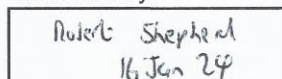 Robert Shepherd
16 Jan 24